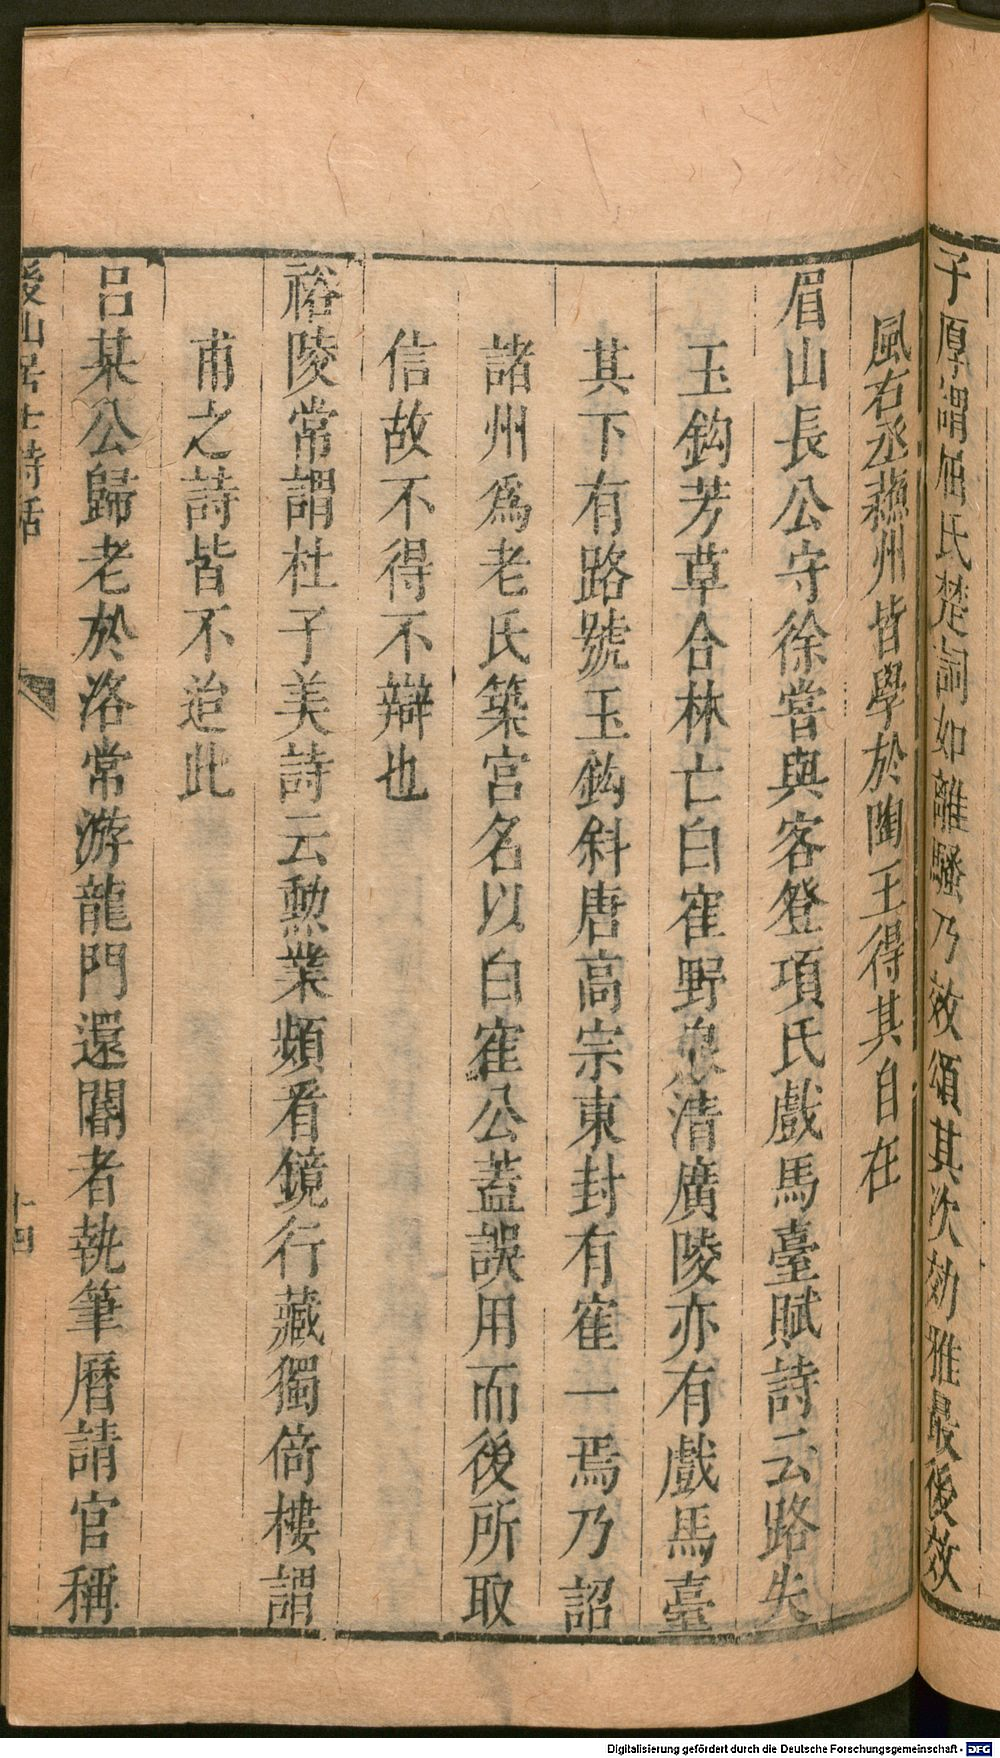 子厚謂屈氏楚詞如離騷乃效頌其次効雅最後效
風右丞蘇州皆學於陶王得其自在
眉山長公守徐嘗與客登項氏戲馬臺賦詩云路失
玉鈎芳草合林亡白寉野泉清廣陵亦有戲馬臺
其下有路號玉鈎斜唐高宗東封有寉一焉乃詔
諸州爲老氏築宮名以白寉公蓋誤用而後所取
信故不得不辯也
裕陵常謂杜子美詩云勲業頻看鏡行藏獨倚樓謂
甫之詩皆不迨此
呂某公歸老於洛常游龍門還閽者執筆曆請官稱
後山居士詩話
十四
Digitalisierung gefördert durch die Deutsche Forschungsgemeinschaft - DFG